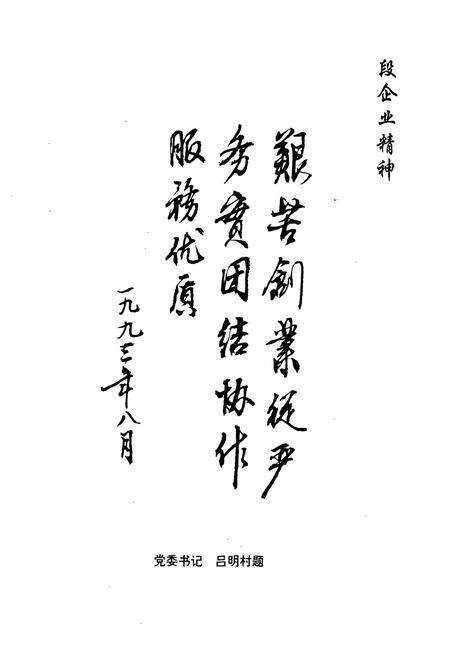 段企业精神
艱苦創業從严
务實团结协作
服務优质
一九九三年八月
党委书记 吕明村题